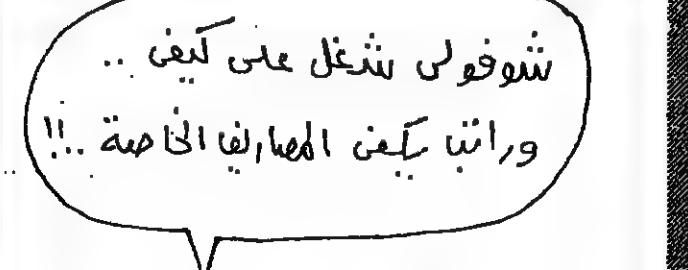 شوفولى شغل على كيفى ..
وراتب يكفى المصاريف الخاصة ..!!